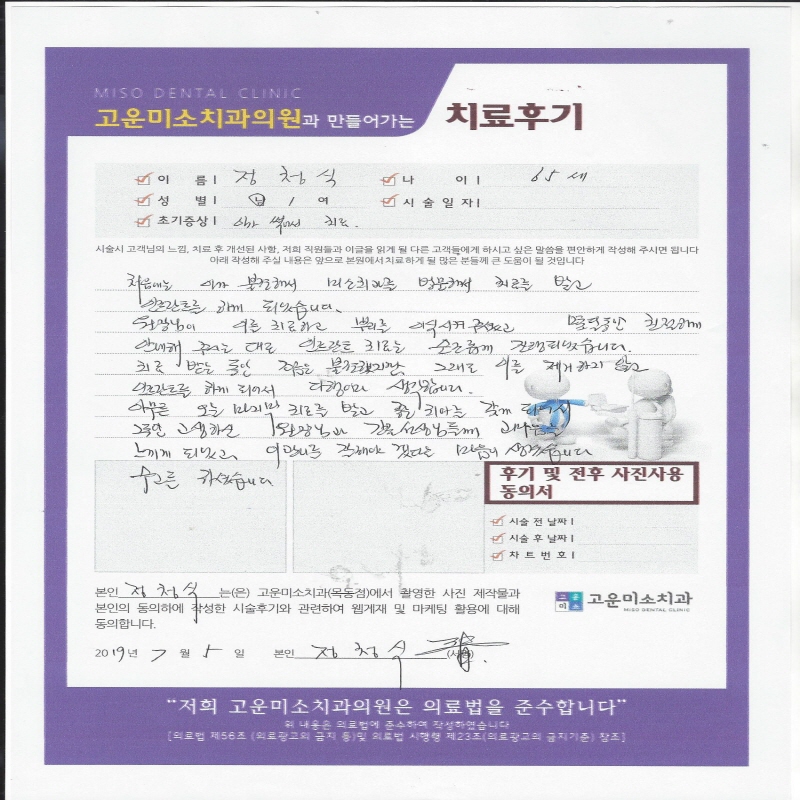 MISO DENTAL CLINIC
고운미소치과의원과 만들어가는 치료후기
이 름 | 정청식 나 이 | 65세
성 별 | 남 / 여 시술일자 |
초기증상 | 이가 썩어서 치료.
시술시 고객님의 느낌, 치료 후 개선된 사항, 저희 직원들과 이글을 읽게 될 다른 고객들에게 하시고 싶은 말씀을 편안하게 작성해 주시면 됩니다
아래 작성해 주실 내용은 앞으로 본원에서 치료하게 될 많은 분들께 큰 도움이 될 것입니다
처음에는 이가 불편해서 미소치과를 방문해서 치료를 받고
임프란트를 하게 되었습니다.
원장님이 이를 치료하고 뿌리를 이식시켜 주셨고 몇달동안 친절하게
안내해 주시는 대로 임프란트 치료는 순조롭게 진행되었습니다.
치료 받는 동안 조금은 불편했지만, 그래도 이를 제거하지 않고
임프란트를 하게 되어서 다행이라 생각합니다.
아무튼 오늘 마지막 치료를 받고 좋은 치아를 갖게 되어서
그동안 고생하신 원장님과 간호선생님들께 고마움을
느끼게 되었고, 이 관리를 잘해야 겠다는 마음이 생겼습니다
수고들 하셨습니다
후기 및 전후 사진사용
동의서
시술 전 날짜 |
시술 후 날짜 |
차 트 번 호 |
본인 정청식 는(은) 고운미소치과(목동점)에서 촬영한 사진 제작물과
본인의 동의하에 작성한 시술후기와 관련하여 웹게재 및 마케팅 활용에 대해
동의합니다.
고운미소 고운미소치과
MISO DENTAL CLINIC
2019년 7월 5일 본인 정청식 (서명)
"저희 고운미소치과의원은 의료법을 준수합니다"
위 내용은 의료법에 준수하여 작성하였습니다
[의료법 제56조 (의료광고의 금지 등)및 의료법 시행령 제23조(의료광고의 금지기준) 참조]